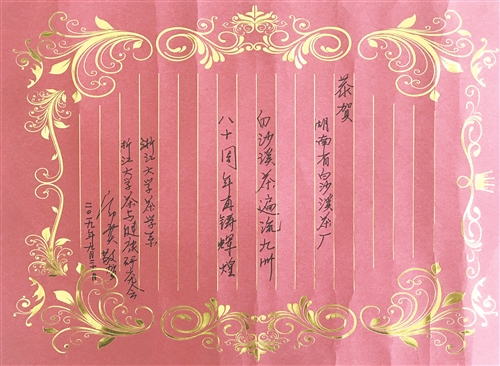 恭贺
湖南省白沙溪茶厂
白沙溪茶遍流九州
八十周年再铸辉煌
浙江大学茶学系
浙江大学茶与健康研究会
敬
二〇一九年九月二十